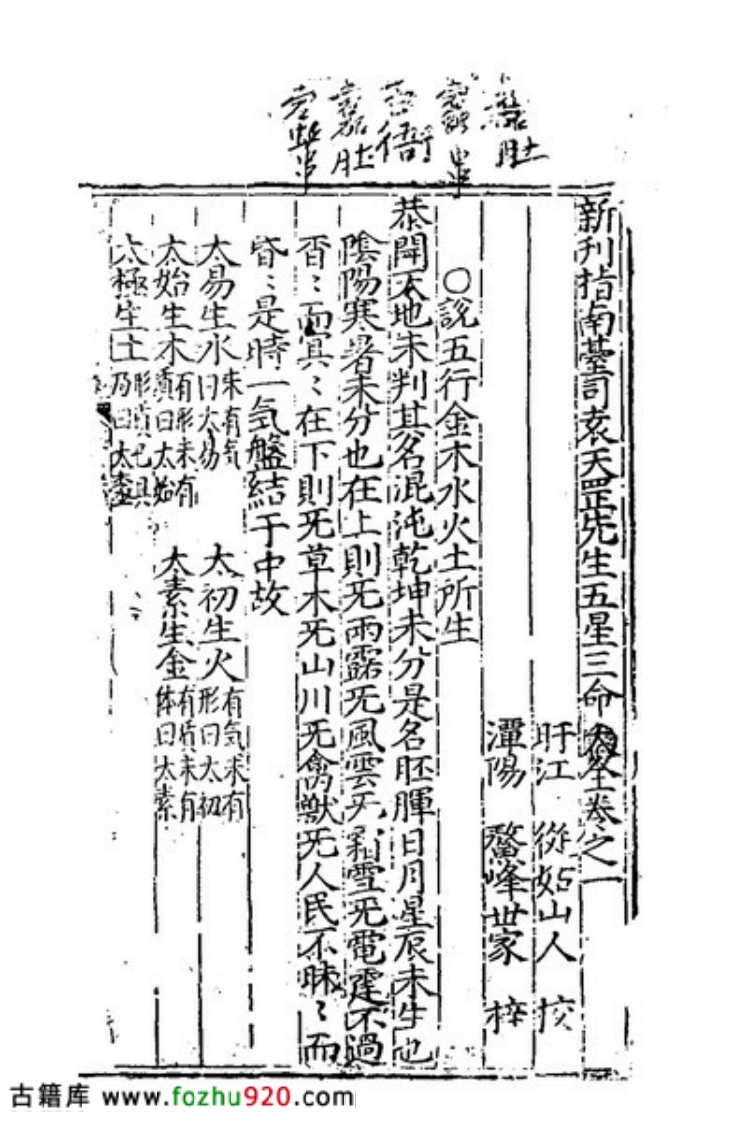 新刊指南臺司袁天罡先生五星三命大全卷之一
盱江 從姑山人 校
潭陽 鰲峰世家 梓
○說五行金木水火土所生
恭聞天地未判其名混沌乾坤未分是名胚腪日月星辰未生也
陰陽寒暑未分也在上則旡雨露旡風雲旡霜雪旡電霆不過
杳〻而冥〻在下則旡草木旡山川旡禽獸旡人民不昧〻而
昏〻是時一気盤結于中故
太易生水未有気曰太易 太初生火有気未有形曰太初
太始生木有形未有質曰太始 太素生金有質未有体曰太素
太極生土形質已具乃曰太極
古籍库 www.fozhu920.com